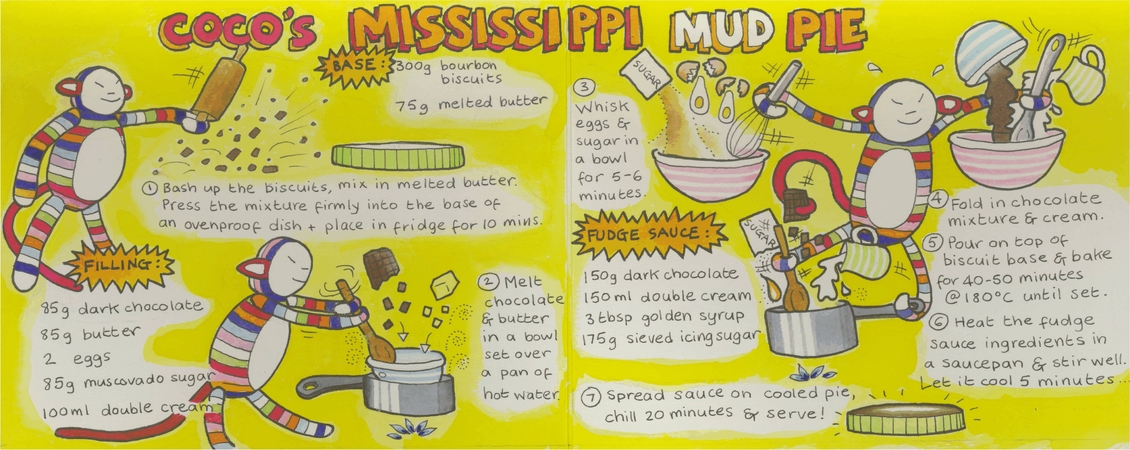 COCO'S MISSISSIPPI MUD PIE
BASE:
300g bourbon
biscuits
75g melted butter
① Bash up the biscuits, mix in melted butter.
Press the mixture firmly into the base of
an ovenproof dish + place in fridge for 10 mins.
FILLING:
85g dark chocolate
85g butter
2 eggs
85g muscovado sugar
100ml double cream
② Melt
chocolate
& butter
in a bowl
set over
a pan of
hot water.
③
Whisk
eggs &
sugar in
a bowl
for 5-6
minutes.
SUGAR
④ Fold in chocolate
mixture & cream.
⑤ Pour on top of
biscuit base & bake
for 40-50 minutes
@ 180°C until set.
FUDGE SAUCE:
150g dark chocolate
150ml double cream
3 tbsp golden syrup
175g sieved icing sugar
SUGAR
⑥ Heat the fudge
sauce ingredients in
a saucepan & stir well.
Let it cool 5 minutes...
⑦ Spread sauce on cooled pie,
chill 20 minutes & serve!